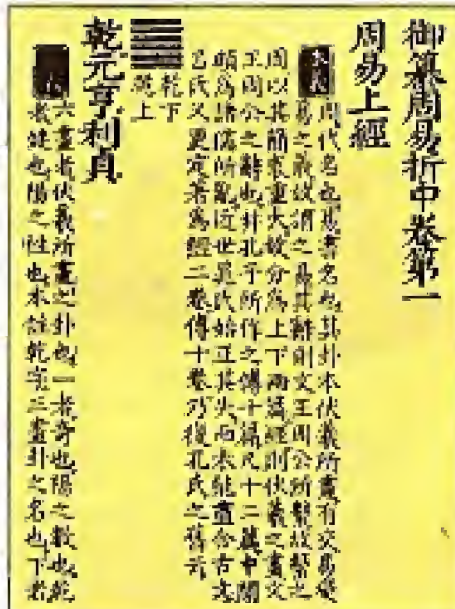 御纂周易折中卷第一
周易上經
本義 周代名也易書名也其卦本伏羲所畫有交易變
易之義故謂之易其辭則文王周公所繫故繫之
周以其簡袠重大故分為上下兩篇經則伏羲之畫文
王周公之辭也并孔子所作之傳十篇凡十二篇中間
頗為諸儒所亂近世晁氏始正其失而未能盡合古文
呂氏又更定著為經二卷傳十卷乃復孔氏之舊云
乾下
乾上
乾元亨利貞
六畫者伏羲所畫之卦也一者奇也陽之數也乾
者健也陽之性也本註乾字三畫卦之名也下者